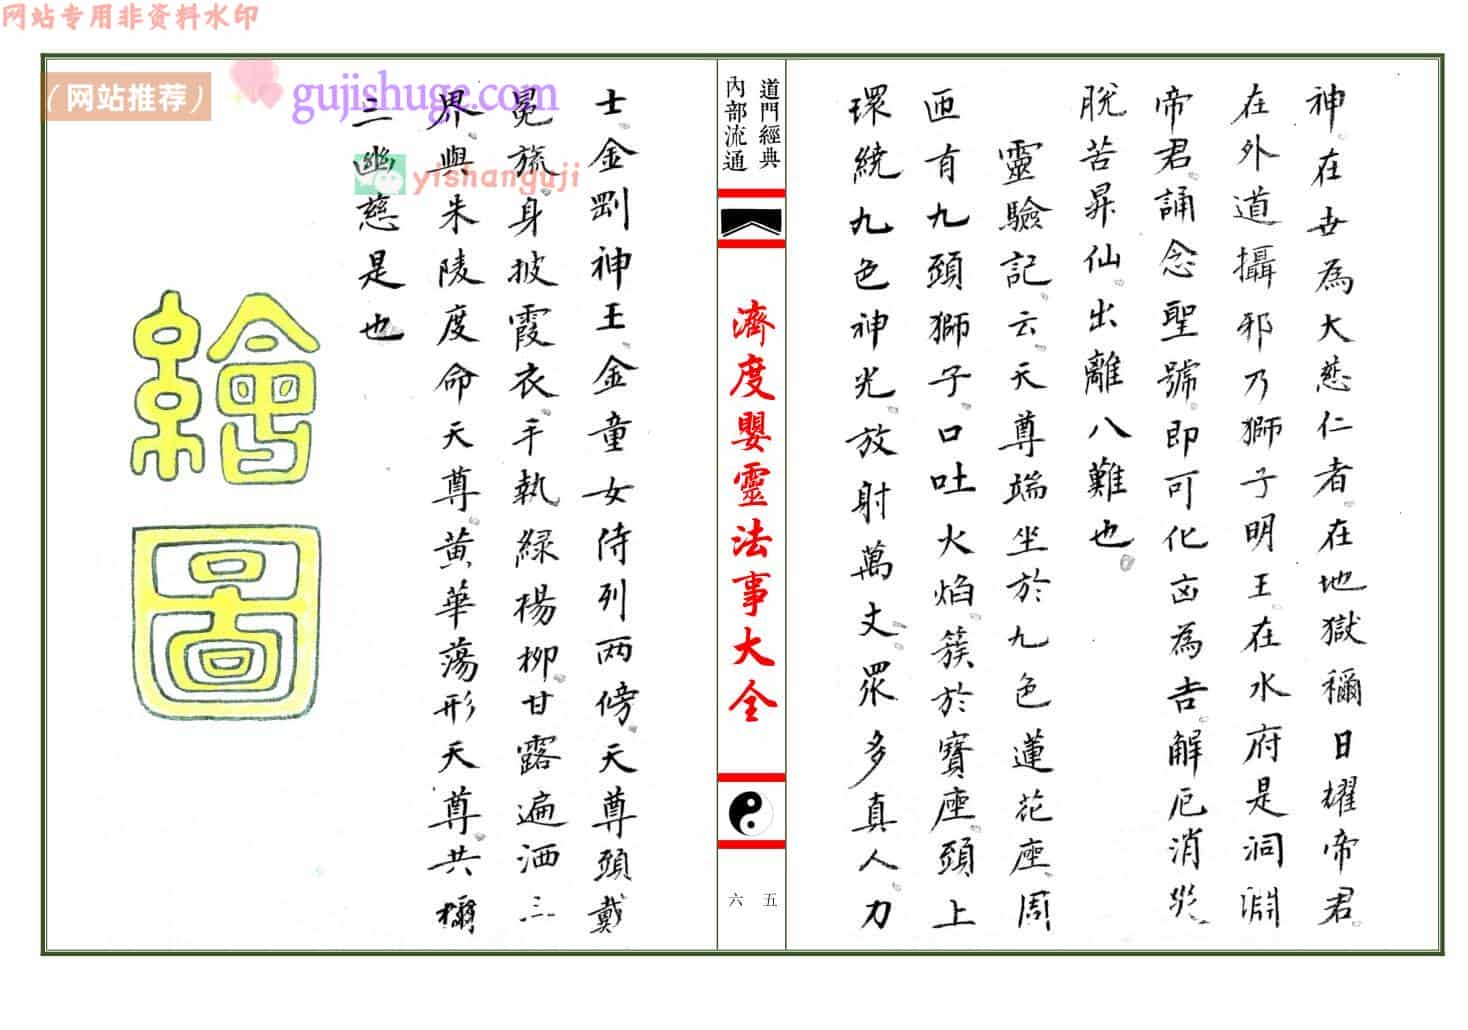 网站专用非资料水印
（网站推荐）
gujishuge.com
yishanguji
神在世為大慈仁者在地獄稱日耀帝君
在外道攝邪乃獅子明王在水府是洞淵
帝君誦念聖號即可化凶為吉解厄消災
脫苦昇仙出離八難也
靈驗記云天尊端坐於九色蓮花座周
匝有九頭獅子口吐火焰簇於寶座頭上
環繞九色神光放射萬丈眾多真人力
道門經典
內部流通
濟度嬰靈法事大全
五
六
士金剛神王金童女侍列两傍天尊頭戴
冕旒身披霞衣手執緑楊柳甘露遍洒三
界與朱陵度命天尊黄華蕩形天尊共稱
三幽慈是也
繪圖